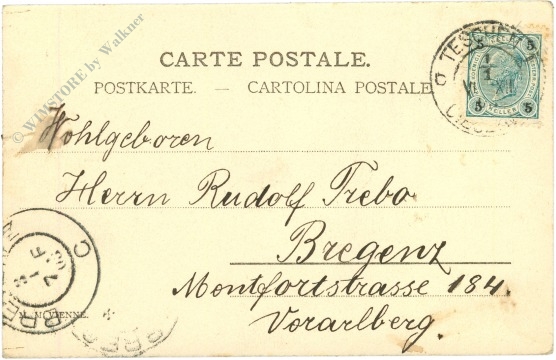 © WIMSTORE by Walkner
CARTE POSTALE.
POSTKARTE. — CARTOLINA POSTALE
5 5
5 HELLER 5
Wohlgeboren
Herrn Rudolf Trebo
Bregenz
Montfortstrasse 184.
Vorarlberg.
M. M. VIENNE.